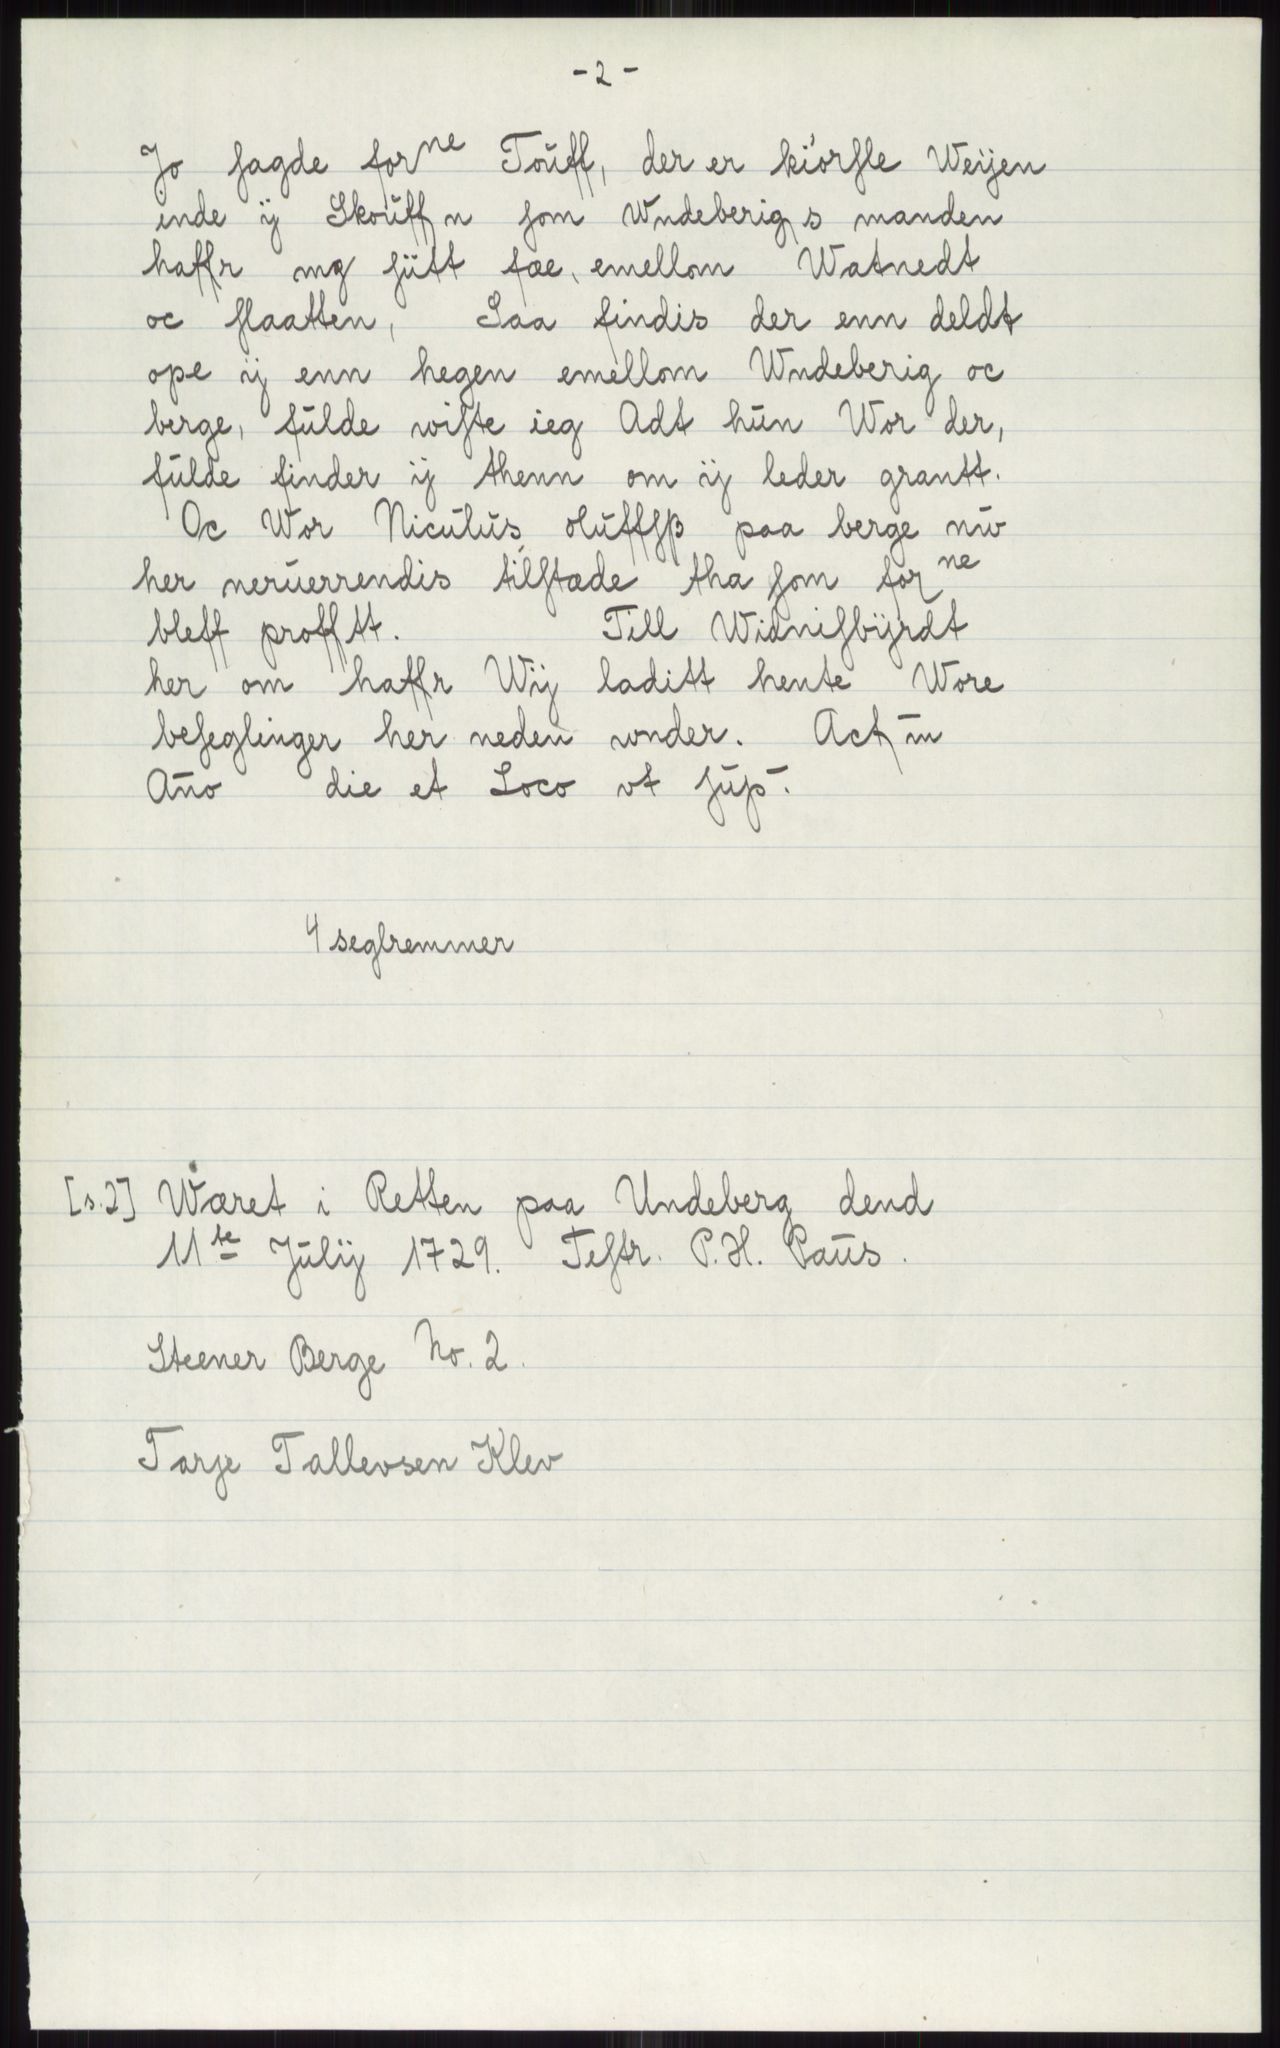 - 2 -
Jo sagde forne Touff, der er kiorsle Weÿen
ende ÿ Skouffn som Wndeberigs manden
haffr mg sütt fæ, emellom Watnedt
oc slaatten, Saa findis der enn deldt
ope ÿ enn hegen emellom Wndeberig oc
berge, fulde wiste ieg Adt hun Wor der,
fulde finder ÿ thenn om ÿ leder grantt.
Oc Wor Niculus oluffsß paa berge nuv
her neruerrendis tilstæde tha som forne
bleff profftt. Till Widnisbÿrdt
her om haffr Wÿ laditt hente Wore
beseglinger her neden wnder. Actm̄
An̄o die et Loco vt sup̄.
4 seglremmer
[s.2] Wæret i Retten paa Undeberg dend
11te Julÿ 1729. Testr. P.H. Paus.
Steener Berge No. 2.
Tarje Tallevsen Klev